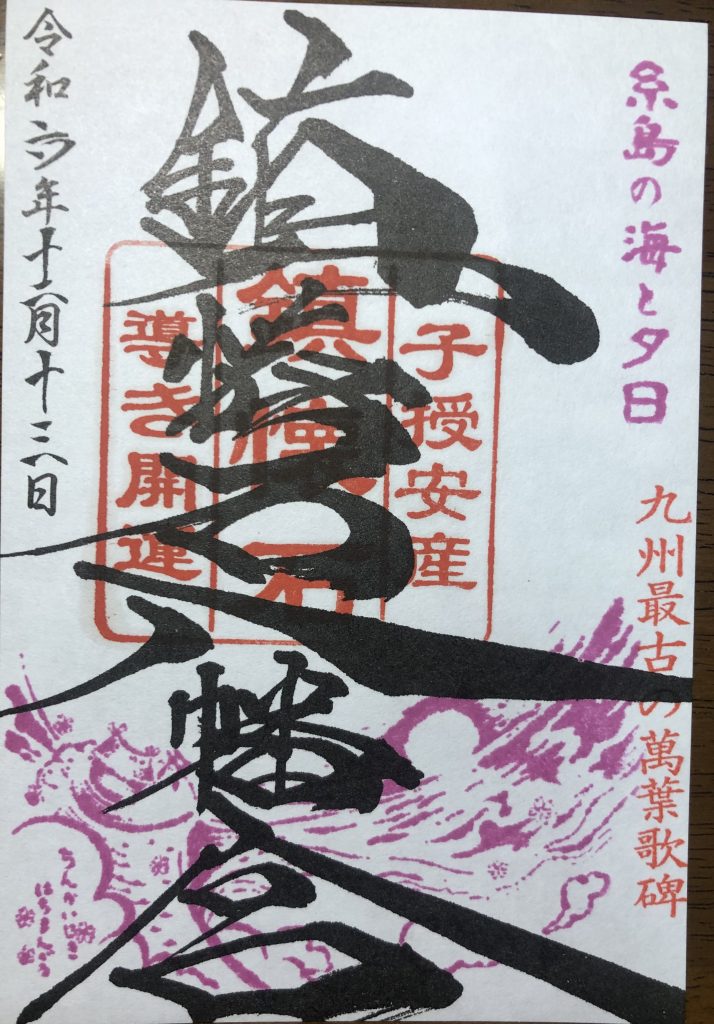 糸島の海と夕日
九州最古の萬葉歌碑
子授安産
鎮懐石
導き開運
鎮懐石八幡宮
令和六年十二月十三日
ちんかいせき
はちまんぐう